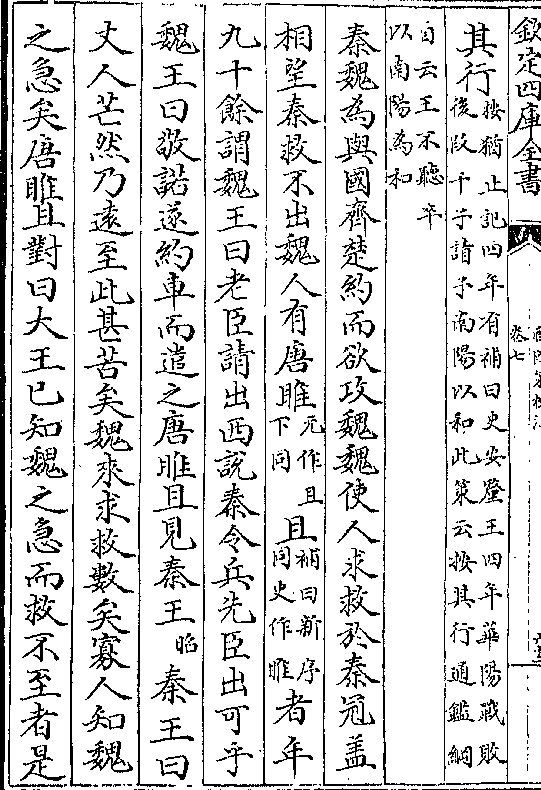 欽定四庫全書
卷七
其行按猶止記四年有補曰史安釐王四年華陽戰敗
後段干子請予南陽以和此策云按其行通鑑綱
目云王不聽卒
以南陽為和
秦魏為與國齊楚約而欲攻魏魏使人求救於秦冠蓋
相望秦救不出魏人有唐雎元作且
下同且補曰新序
同史作雎者年
九十餘謂魏王曰老臣請出西說秦令兵先臣出可乎
魏王曰敬諾遂約車而遣之唐雎且見秦王昭秦王曰
丈人芒然乃遠至此甚苦矣魏來求救數矣寡人知魏
之急矣唐雎且對曰大王已知魏之急而救不至者是